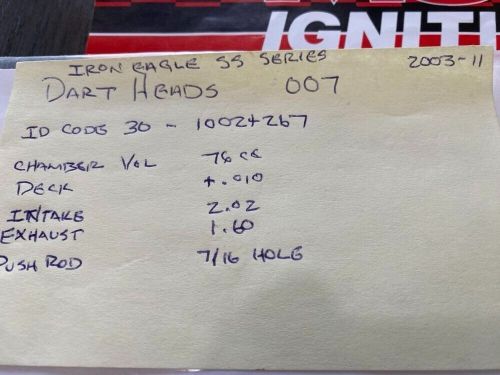 IGNITI
IRON EAGLE SS SERIES 2003-11
DART HEADS 007
ID CODE 30 - 10024267
CHAMBER VOL 76 CC
DECK +.010
INTAKE 2.02
EXHAUST 1.60
PUSH ROD 7/16 HOLE